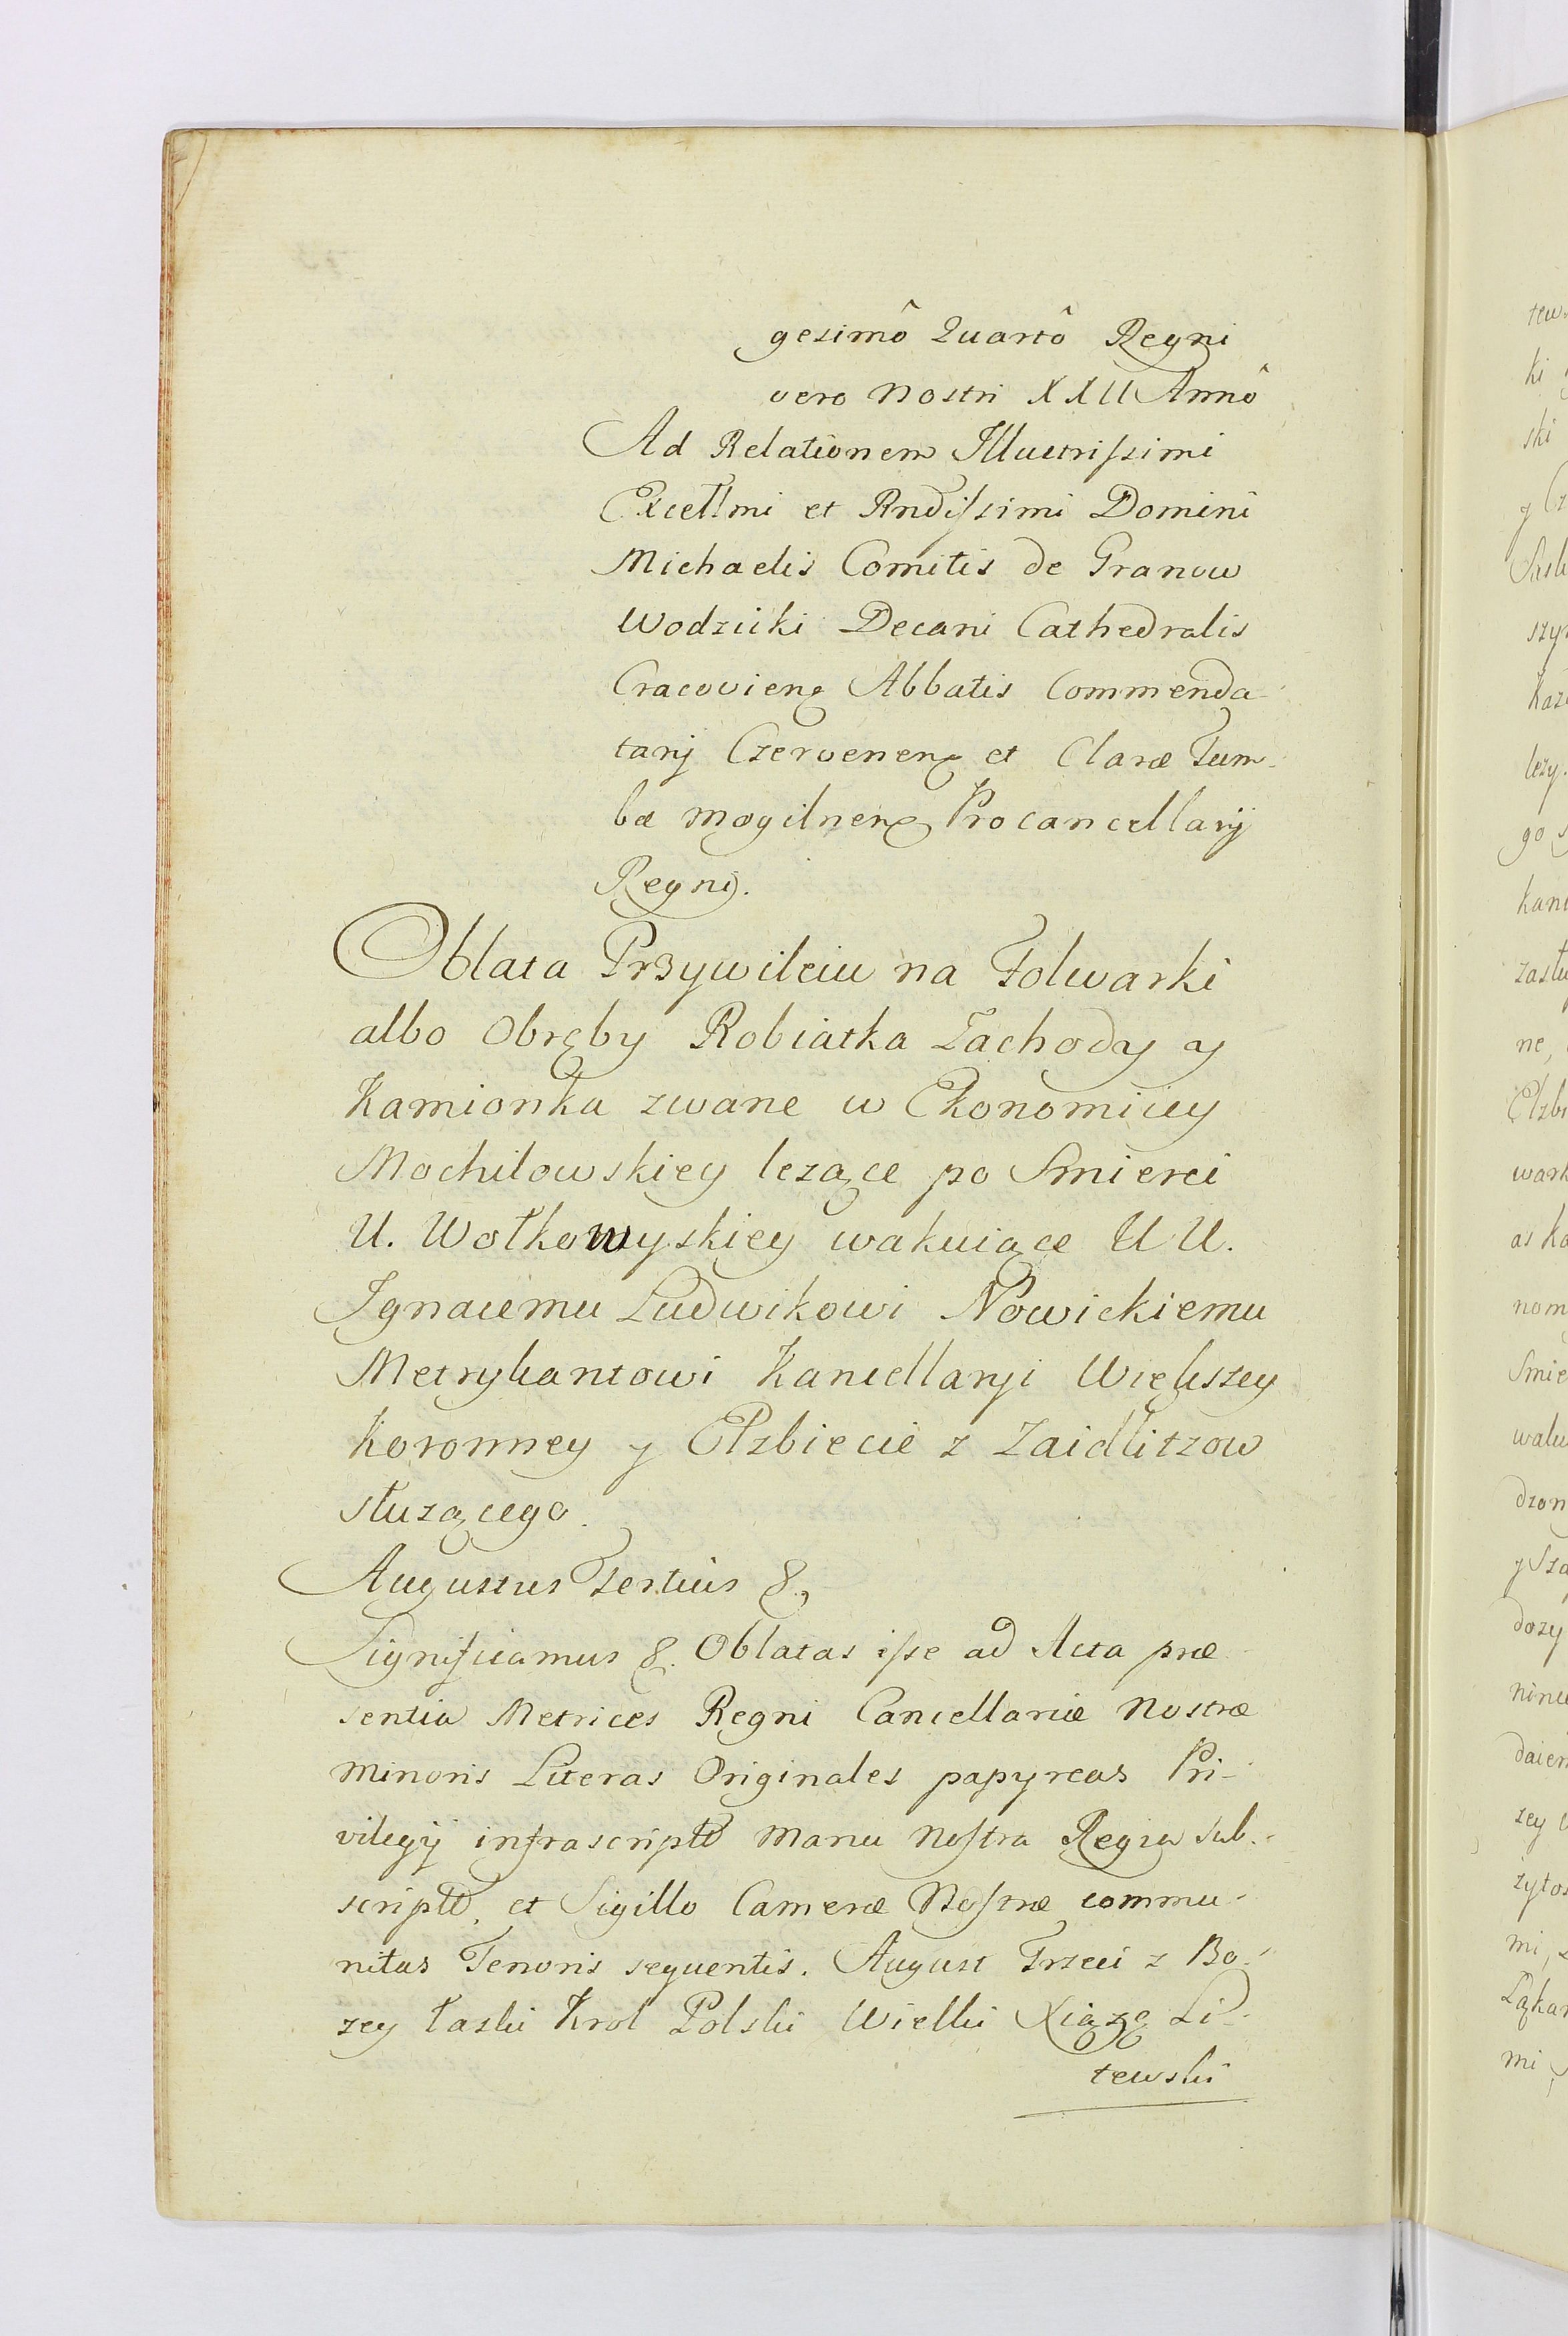 gesimô Quartô Regni
vero Nostri XXII Annô
Ad Relationem Illustrissimi
Excellmi et Rndissimi Domini
Michaelis Comitis de Granow
Wodzicki Decani Cathedralis
Cracovien Abbatis Commenda-
tarij Czervenen et Claræ Tum-
bæ Mogilnen Procancellarij
Regni.
Oblata Przywileiu na Folwarki
albo Obręby Robiatka Zachody y
Kamionka zwane w Ekonomicy
Mochilowskiey lezące po Smierci
U. Wołkowyskiey wakuiące UU.
Ignacemu Ludwikowi Nowickiemu
Metrykantowi Kancellaryi Większey
Koronney y Elzbiecie z Zaidlitzow
służącego.
Augustus Tertius &
Significamus &. Oblatas isse ad Acta præ
sentia Metrices Regni Cancellariæ Nostræ
Minoris Literas Originales papyreas Pri-
vilegij infrascripti Manu Nostra Regia sub-
scripti, et Sigillo Cameræ Nostræ commu-
nitas Tenoris sequentis. August Trzeci z Bo-
zey Łaski Krol Polski Wielki Xiązę Li-
tewski